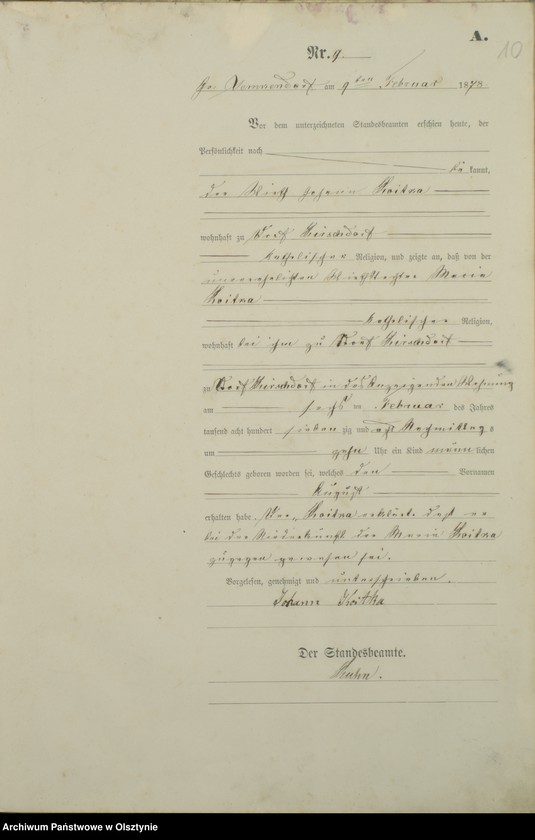 A.
10
Nr. 9.
am 9ten Februar 1878
Vor dem unterzeichneten Standesbeamten erschien heute, der
Persönlichkeit nach
be kannt,
der Wirth Johann Koitka
wohnhaft zu Dorf
katholischer Religion, und zeigte an, daß von der
unverehelichten Wirthstochter Maria
Koitka
katholischer Religion,
wohnhaft bei ihm zu Dorf
zu Dorf in des Anzeigenden Wohnung
am sechs ten Februar des Jahres
tausend acht hundert sieben zig und acht Nachmittags
um zehn Uhr ein Kind männ lichen
Geschlechts geboren worden sei, welches den Vornamen
August
erhalten habe. Der Koitka erklärte daß er
bei der Niederkunft der Maria Koitka
zugegen gewesen sei.
Vorgelesen, genehmigt und unterschrieben.
Johann Koitka
Der Standesbeamte.
Archiwum Państwowe w Olsztynie